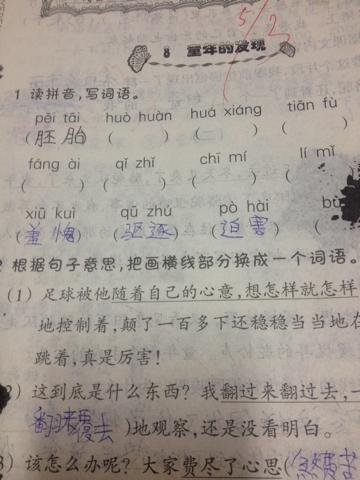 5/2
8 童年的发现
1 读拼音,写词语。
pēi tāi huò huàn huá xiáng tiān fù
(胚胎) ( ) ( ) ( )
fáng ài qǐ zhǐ chī mí lí mǐ
( ) ( ) ( ) (
xiū kuì qū zhú pò hài bù
(羞愧) (驱逐) (迫害) (
根据句子意思,把画横线部分换成一个词语。
(1) 足球被他随着自己的心意,想怎样就怎样
地控制着,颠了一百多下还稳稳当当地在
跳着,真是厉害!
2) 这到底是什么东西?我翻过来翻过去,一
翻来覆去)地观察,还是没看明白。
3) 该怎么办呢?大家费尽了心思(煞费苦